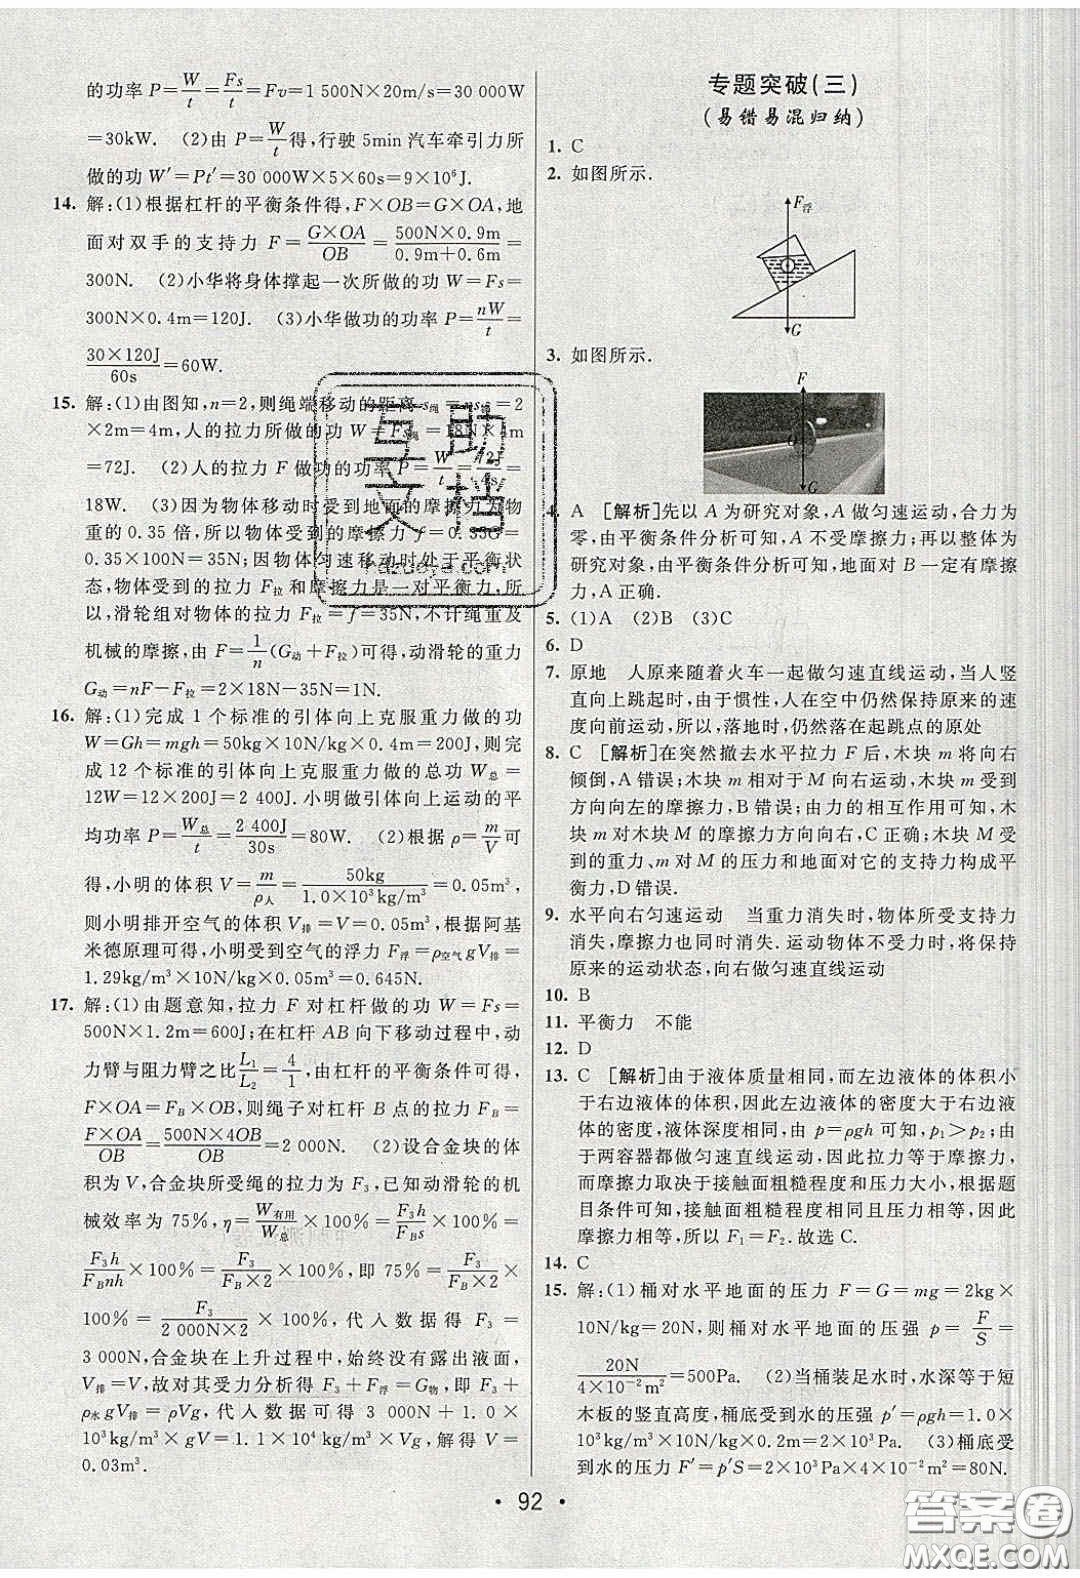 的功率 P=W/t=Fs/t=Fv=1 500N×20m/s=30 000W
=30kW. (2)由 P=W/t得,行驶 5min 汽车牵引力所
做的功 W′=Pt′=30 000W×5×60s=9×10⁶J.
14. 解:(1)根据杠杆的平衡条件得,F×OB=G×OA,地
面对双手的支持力 F=G×OA/OB=500N×0.9m/0.9m+0.6m=
300N. (2)小华将身体撑起一次所做的功 W=Fs=
300N×0.4m=120J. (3)小华做功的功率 P=nW/t=
30×120J/60s=60W.
15. 解:(1)由图知,n=2,则绳端移动的距离 s绳=ns物=2
×2m=4m,人的拉力所做的功 W=Fs绳=18N×4m
=72J. (2)人的拉力 F 做功的功率 P=W/t=72J/4s=
18W. (3)因为物体移动时受到地面的摩擦力为物
重的 0.35 倍,所以物体受到的摩擦力 f=0.35G=
0.35×100N=35N;因物体匀速移动时处于平衡状
态,物体受到的拉力 F拉和摩擦力是一对平衡力,所
以,滑轮组对物体的拉力 F拉=f=35N,不计绳重及
机械的摩擦,由 F=1/n(G动+F拉)可得,动滑轮的重力
G动=nF-F拉=2×18N-35N=1N.
16. 解:(1)完成 1 个标准的引体向上克服重力做的功
W=Gh=mgh=50kg×10N/kg×0.4m=200J,则完
成 12 个标准的引体向上克服重力做的总功 W总=
12W=12×200J=2 400J.小明做引体向上运动的平
均功率 P=W总/t=2 400J/30s=80W. (2)根据 ρ=m/V可
得,小明的体积 V=m/ρ人=50kg/1.0×10³kg/m³=0.05m³,
则小明排开空气的体积 V排=V=0.05m³,根据阿基
米德原理可得,小明受到空气的浮力 F浮=ρ空气gV排=
1.29kg/m³×10N/kg×0.05m³=0.645N.
17. 解:(1)由题意知,拉力 F 对杠杆做的功 W=Fs=
500N×1.2m=600J;在杠杆 AB 向下移动过程中,动
力臂与阻力臂之比L₁/L₂=4/1,由杠杆的平衡条件可得,
F×OA=F_B×OB,则绳子对杠杆 B 点的拉力 F_B=
F×OA/OB=500N×4OB/OB=2 000N. (2)设合金块的体
积为 V,合金块所受绳的拉力为 F₃,已知动滑轮的机
械效率为 75%,η=W有用/W总×100%=F₃h/F_Bs×100%=
F₃h/F_Bnh×100%=F₃/F_B×2×100%,即 75%=F₃/F_B×2×
100%=F₃/2 000N×2×100%,代入数据得 F₃=
3 000N,合金块在上升过程中,始终没有露出液面,
V排=V,故对其受力分析得 F₃+F浮=G物,即 F₃+
ρ水gV排=ρVg,代入数据可得 3 000N+1.0×
10³kg/m³×gV=1.1×10⁴kg/m³×Vg,解得 V=
0.03m³.
专题突破(三)
(易错易混归纳)
1. C
2. 如图所示.
F浮
G
3. 如图所示.
F
G
4. A [解析]先以 A 为研究对象,A 做匀速运动,合力为
零,由平衡条件分析可知,A 不受摩擦力;再以整体为
研究对象,由平衡条件分析可知,地面对 B 一定有摩擦
力,A正确.
5. (1)A (2)B (3)C
6. D
7. 原地 人原来随着火车一起做匀速直线运动,当人竖
直向上跳起时,由于惯性,人在空中仍然保持原来的速
度向前运动,所以,落地时,仍然落在起跳点的原处
8. C [解析]在突然撤去水平拉力 F 后,木块 m 将向右
倾倒,A 错误;木块 m 相对于 M 向右运动,木块 m 受到
方向向左的摩擦力,B 错误;由力的相互作用可知,木
块 m 对木块 M 的摩擦力方向向右,C 正确;木块 M 受
到的重力、m 对 M 的压力和地面对它的支持力构成平
衡力,D 错误.
9. 水平向右匀速运动 当重力消失时,物体所受支持力
消失,摩擦力也同时消失.运动物体不受力时,将保持
原来的运动状态,向右做匀速直线运动
10. B
11. 平衡力 不能
12. D
13. C [解析]由于液体质量相同,而左边液体的体积小
于右边液体的体积,因此左边液体的密度大于右边液
体的密度,液体深度相同,由 p=ρgh 可知,p₁>p₂;由
于两容器都做匀速直线运动,因此拉力等于摩擦力,
而摩擦力取决于接触面粗糙程度和压力大小,根据题
目条件可知,接触面粗糙程度相同且压力相等,因此
摩擦力相等,所以 F₁=F₂.故选 C.
14. C
15. 解:(1)桶对水平地面的压力 F=G=mg=2kg×
10N/kg=20N,则桶对水平地面的压强 p=F/S=
20N/4×10⁻²m²=500Pa. (2)当桶装足水时,水深等于短
木板的竖直高度,桶底受到水的压强 p′=ρgh=1.0×
10³kg/m³×10N/kg×0.2m=2×10³Pa. (3)桶底受
到水的压力 F′=p′S=2×10³Pa×4×10⁻²m²=80N.
• 92 •
互助
文档
hazuoya.com
答案圈
MXQE.COM